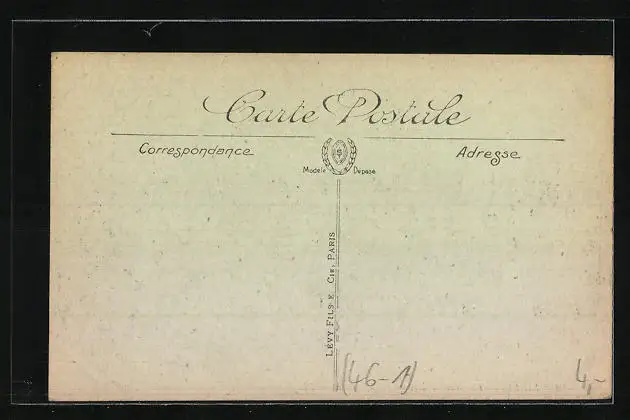 Carte Postale
Correspondance
Adresse
Modèle Déposé
LÉVY FILS E CIE, PARIS
(46-1)
4,-